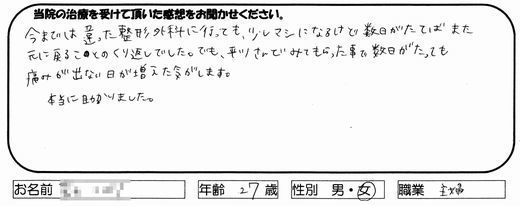 当院の治療を受けて頂いた感想をお聞かせください。
今までは違った整形外科に行っても、少しマシになるだけで数日がたてばまた
元に戻ることのくり返しでした。でも、平川さんでみてもらった事で数日がたっても
痛みが出ない日が増えた気がします。
本当に助かりました。
お名前 年齢 27歳 性別 男・女 職業 主婦